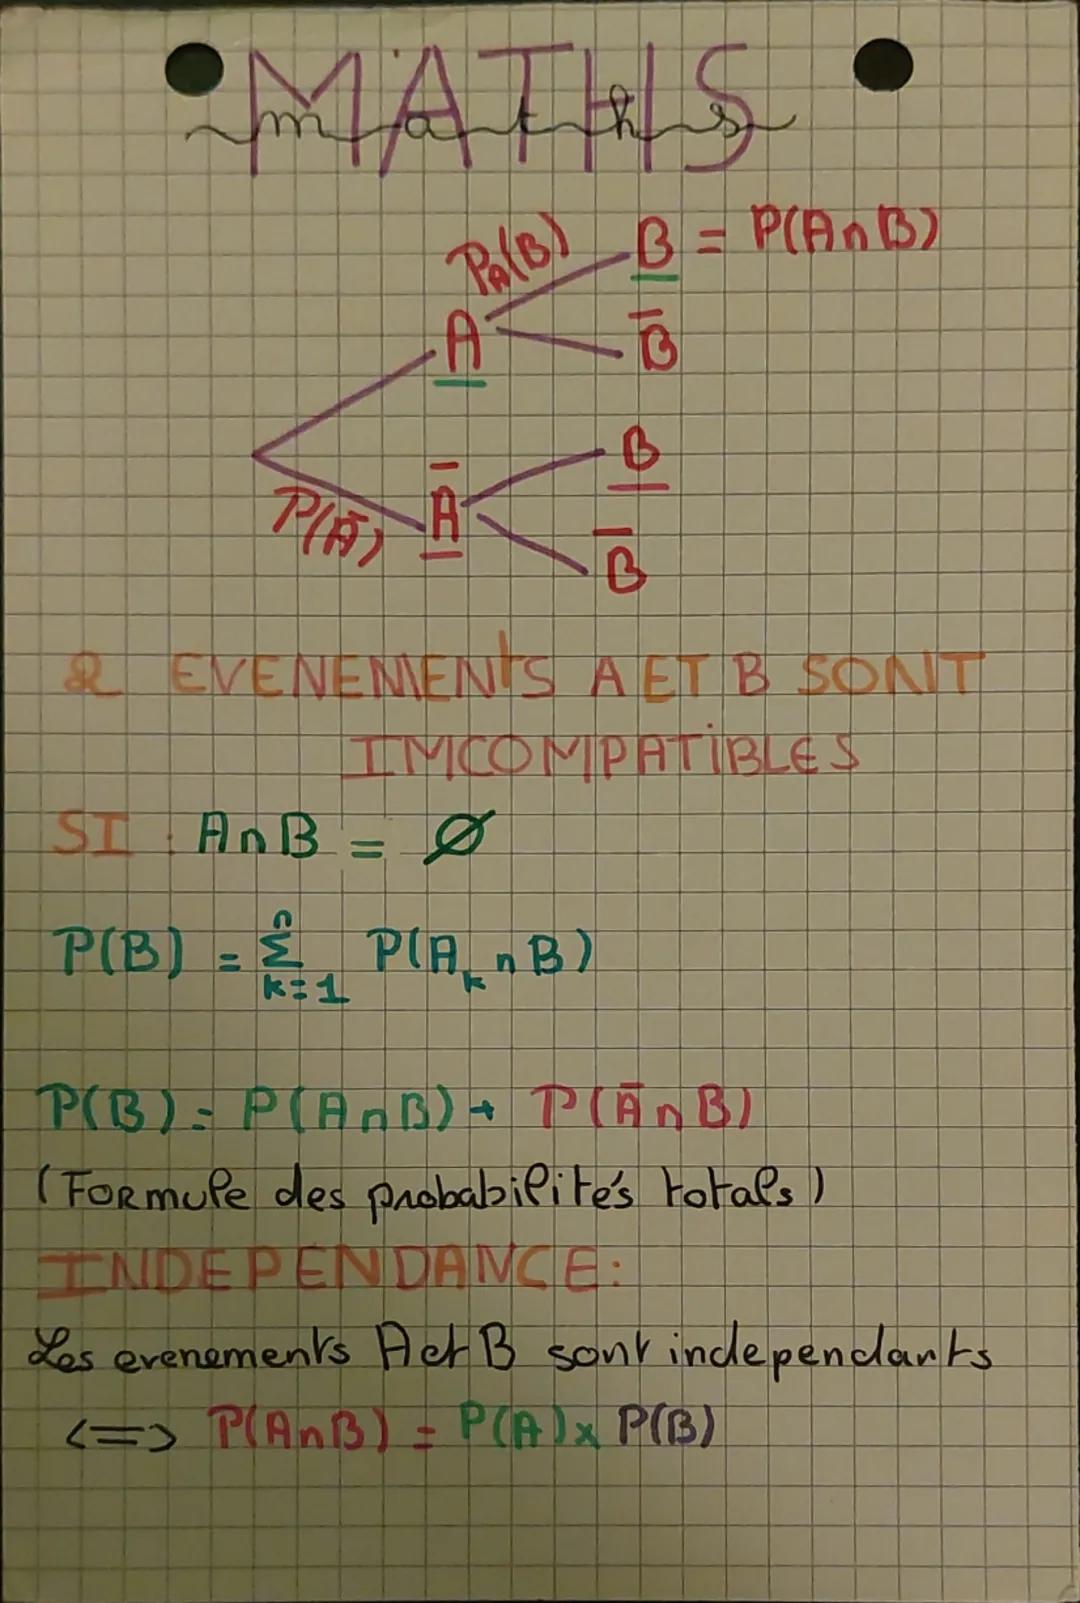 MATHS
maths
P_A(B) B = P(A∩B)
A B̄
B
P(Ā) Ā
B̄
2 EVENEMENtS A ET B SONT
IMCOMPATiBLES
SI : A∩B = Ø
P(B) = Σ_{k=1}^{n} P(A_k ∩ B)
P(B) = P(A∩B) + P(Ā∩B)
(FORmule des probabilités totals)
INDEPENDANCE:
Les evenements A et B sont independants
<=> P(A∩B) = P(A) x P(B)